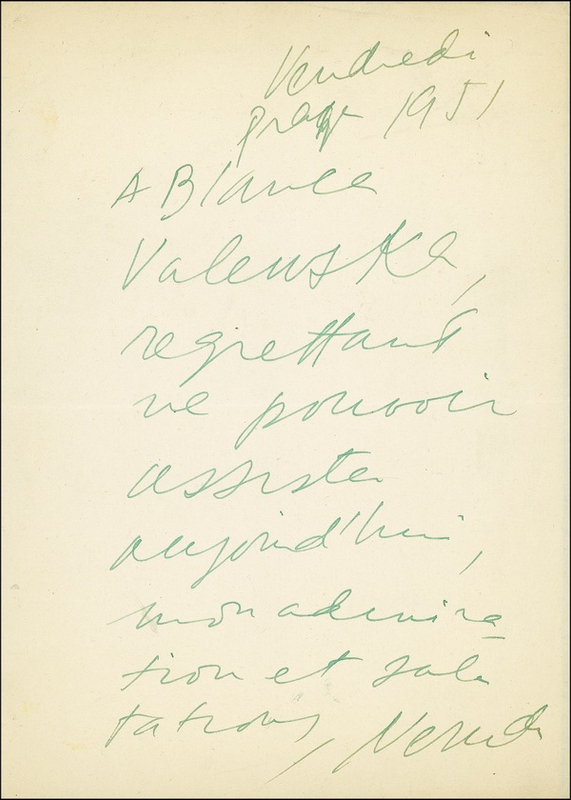 Vendredi
Prague 1951
A Blanca
Valenska,
regrettant
ne pouvoir
assister
aujourd'hui,
mon admira
tion et salu
tations, Neruda